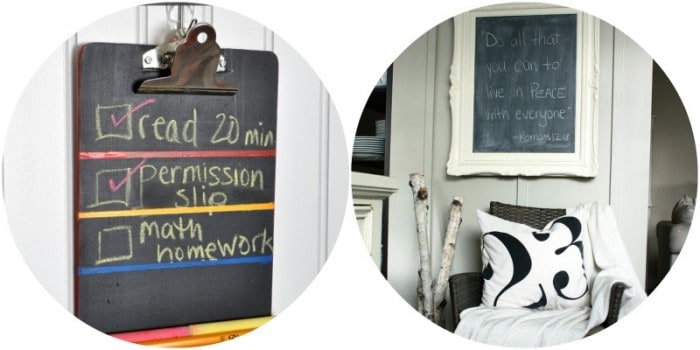 read 20 min
permission
slip
math
homework
"Do all that
you can to
live in PEACE
with everyone."
-Romans 12:18